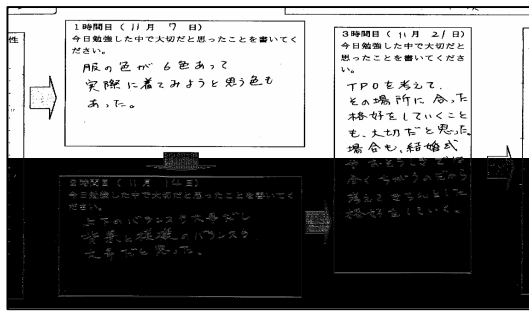 性
1時間目（11月 7日）
今日勉強した中で大切だと思ったことを書いてく
ださい。
服の色が 6色あって
実際に着てみようと思う色も
あった。
2時間目（11月 14日）
今日勉強した中で大切だと思ったことを書いてく
ださい。
上下のバランスが大事だし
背景と模様のバランスが
大事だと思った。
3時間目（11月 21日）
今日勉強した中で大切だと
思ったことを書いてくださ
い。
TPOを考えて、
その場所に合った
格好をしていくこと
も、大切だと思った。
場合も、結婚式
全くちがうのだから
考えてきちんとした
格好をしていく。